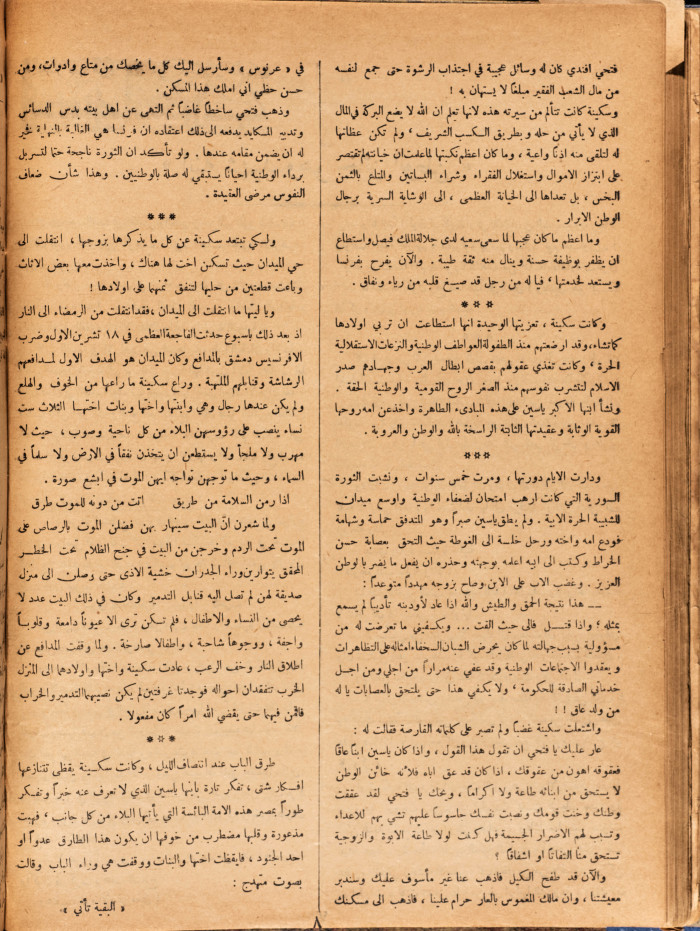 فتحي افندي كان له وسائل عجيبة في اجتذاب الرشوة حتى جمع لنفسه
من مال الشعب الفقير مبلغاً لا يستهان به !
وسكينة كانت تتألم من سيرته هذه لانها تعلم ان الله لا يضع البركة في المال
الذي لا يأتي من حله وبطريق الكسب الشريف ، ولم تكن عظاتها
له لتلقى منه اذناً واعية ، وما كان اعظم نكبتها لما علمت ان خيانته لم تقتصر
على ابتزاز الاموال واستغلال الفقراء وشراء البساتين والمتاع بالثمن
البخس ، بل تعداها الى الخيانة العظمى ، الى الوشاية السرية برجال
الوطن الابرار .
وما اعظم ما كان عجبها لما سعى سعيه لدى جلالة الملك فيصل واستطاع
ان يظفر بوظيفة حسنة وينال منه ثقة طيبة . والآن يفرح بفرنسا
ويستعد لخدمتها ، فيا له من رجل قد صيغ قلبه من رياء ونفاق .
***
وكانت سكينة ، تعزيتها الوحيدة انها استطاعت ان تربي اولادها
كما تشاء ، وقد ارضعتهم منذ الطفولة العواطف الوطنية والنزعات الاستقلالية
الحرة ، وكانت تغذي عقولهم بقصص ابطال العرب وجهادهم صدر
الاسلام لتشرب نفوسهم منذ الصغر الروح القومية والوطنية الحقة .
ونشأ ابنها الاكبر ياسين على هذه المبادىء الطاهرة واخذ عن امه روحها
القوية الوثابة وعقيدتها الثابتة الراسخة بالله والوطن والعروبة .
***
ودارت الايام دورتها ، ومرت خمس سنوات ، ونشبت الثورة
السورية التي كانت ارهب امتحان لضعفاء الوطنية واوسع ميدان
للشبيبة الحرة الابية . ولم يطق ياسين صبراً وهو المتدفق حماسة وشهامة
فودع امه واخته ورحل خلسة الى الغوطة حيث التحق بعصابة حسن
الخراط وكتب الى ابيه اعلمه بوجهته وحذره ان يفعل ما يضر بالوطن
العزيز . وغضب الاب على الابن وصاح بزوجه مهدداً متوعداً :
— هذا نتيجة الحمق والطيش والله اذا عاد لأودبنه تأديباً لم يسمع
بمثله ؛ واذا قتل فالى حيث القت ... ويكفيني ما تعرضت له من
مسؤولية بسبب جهالته لما كان يحرض الشبان السخفاء امثاله على التظاهرات
ويعقدوا الاجتماعات الوطنية وقد عفي عنه مراراً من اجلي ومن اجل
خدماتي الصادقة للحكومة ، ولا يكفي هذا حتى يلتحق بالعصابات يا له
من ولد عاق !!
واشتعلت سكينة غضباً ولم تصبر على كلماته القارصة فقالت له :
عار عليك يا فتحي ان تقول هذا القول ، واذا كان ياسين ابناً عاقاً
فعقوقه اهون من عقوقك ، اذا كان قد عق اباه فلأنه خائن الوطن
لا يستحق من ابنائه طاعة ولا اكراماً ، ويحك يا فتحي لقد عققت
وطنك وخنت قومك ونصبت نفسك جاسوساً عليهم تشي بهم للاعداء
وتسبب لهم الاضرار الجسيمة فهل كرامتك لولا طاعة الابوة والزوجية
تستحق منا التفاتاً او اشفاقاً ؟
والآن قد طفح الكيل فاذهب عنا غير مأسوف عليك وسندبر
معيشتنا ، وان مالك المغموس بالعار حرام علينا ، فاذهب الى مسكنك
في « عرنوس » وسأرسل اليك كل ما يخصك من متاع وادوات، ومن
حسن حظي اني املك هذا المسكن .
وذهب فتحي ساخطاً غاضباً ثم التهى عن اهل بيته بدس الدسائس
وتدبير المكايد يدفعه الى ذلك اعتقاده ان فرنسا هي الغالبة بالنهاية فخير
له ان يضمن مقامه عندها . ولو تأكد ان الثورة ناجحة حتماً لتسربل
برداء الوطنية احياناً يستبقي له صلة بالوطنيين . وهذا شأن ضعاف
النفوس مرضى العقيدة .
***
ولكي تبتعد سكينة عن كل ما يذكرها بزوجها ، انتقلت الى
حي الميدان حيث تسكن اخت لها هناك ، واخذت معها بعض الاثاث
وباعت قطعتين من حليها لتنفق ثمنها على اولادها !
ويا ليتها ما انتقلت الى الميدان ، فقد انتقلت من الرمضاء الى النار
اذ بعد ذلك باسبوع حدثت الفاجعة العظمى في ١٨ تشرين الاول وضرب
الافرنسيس دمشق بالمدافع وكان الميدان هو الهدف الاول لمدافعهم
الرشاشة وقنابلهم الملتهبة . وراع سكينة ما راعها من الخوف والهلع
ولم يكن عندها رجال وهي وابنتها واختها وبنات اختها الثلاث ست
نساء ينصب على رؤوسهن البلاء من كل ناحية وصوب ، حيث لا
مهرب ولا ملجأ ولا يستطعن ان يتخذن نفقاً في الارض ولا سلماً في
السماء ، وحيث ما توجهن تواجه ايهن الموت في ابشع صورة .
اذا رمن السلامة من طريق    اتت من دونه للموت طرق
ولما شعرن انّ البيت سينهار بهن فضلن الموت بالرصاص على
الموت تحت الردم وخرجن من البيت في جنح الظلام تحت الخطر
المحقق يتوارين وراء الجدران خشية الاذى حتى وصلن الى منزل
صديقة لهن لم تصل اليه قنابل التدمير وكان في ذلك البيت عدد لا
يحصى من النساء والاطفال ، فلم تكن ترى الا عيوناً دامعة وقلوباً
واجفة ، ووجوهاً شاحبة ، واطفالا صارخة . ولما وقفت المدافع عن
اطلاق النار وخف الرعب ، عادت سكينة واختها واولادهما الى المنزل
الخرب تتفقدان احواله فوجدتا غرفتين لم يكن نصيبهما التدمير والخراب
فاقمن فيهما حتى يقضي الله امراً كان مفعولا .
***
طرق الباب عند انتصاف الليل ، وكانت سكينة يقظى تتنازعها
افكار شتى ، تفكر تارة بابنها ياسين الذي لا تعرف عنه خبراً وتفكر
طوراً بمصير هذه الامة البائسة التي يأتيها البلاء من كل جانب ، فهبت
مذعورة وقلبها مضطرب من خوفها ان يكون هذا الطارق عدواً او
احد الجنود ، فايقظت اختها والبنات ووقفت هي وراء الباب وقالت
بصوت متهدج :
« البقية تأتي »
٨